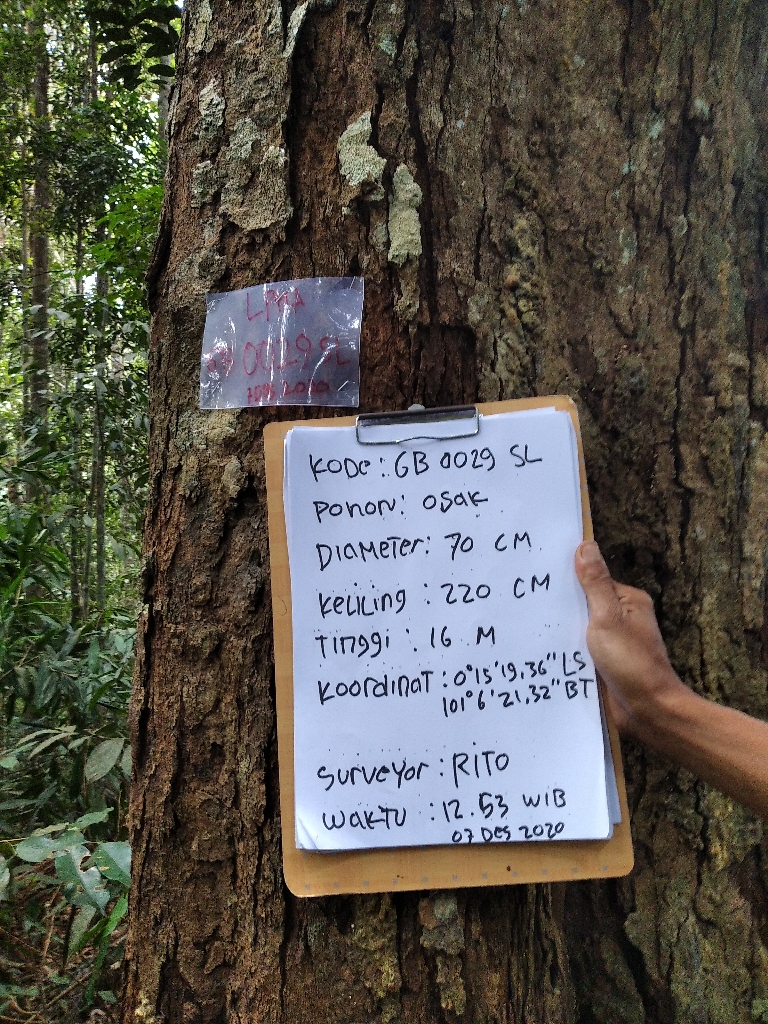 LPHA
GB 0029 SL
2020
KODE : GB 0029 SL
POHON : OSAK
DIAMETER : 70 CM
KELILING : 220 CM
TINGGI : 16 M
KOORDINAT : 0°15'19,36" LS
101°6'21,32" BT
SURVEYOR : RITO
WAKTU : 12.53 WIB
07 DES 2020